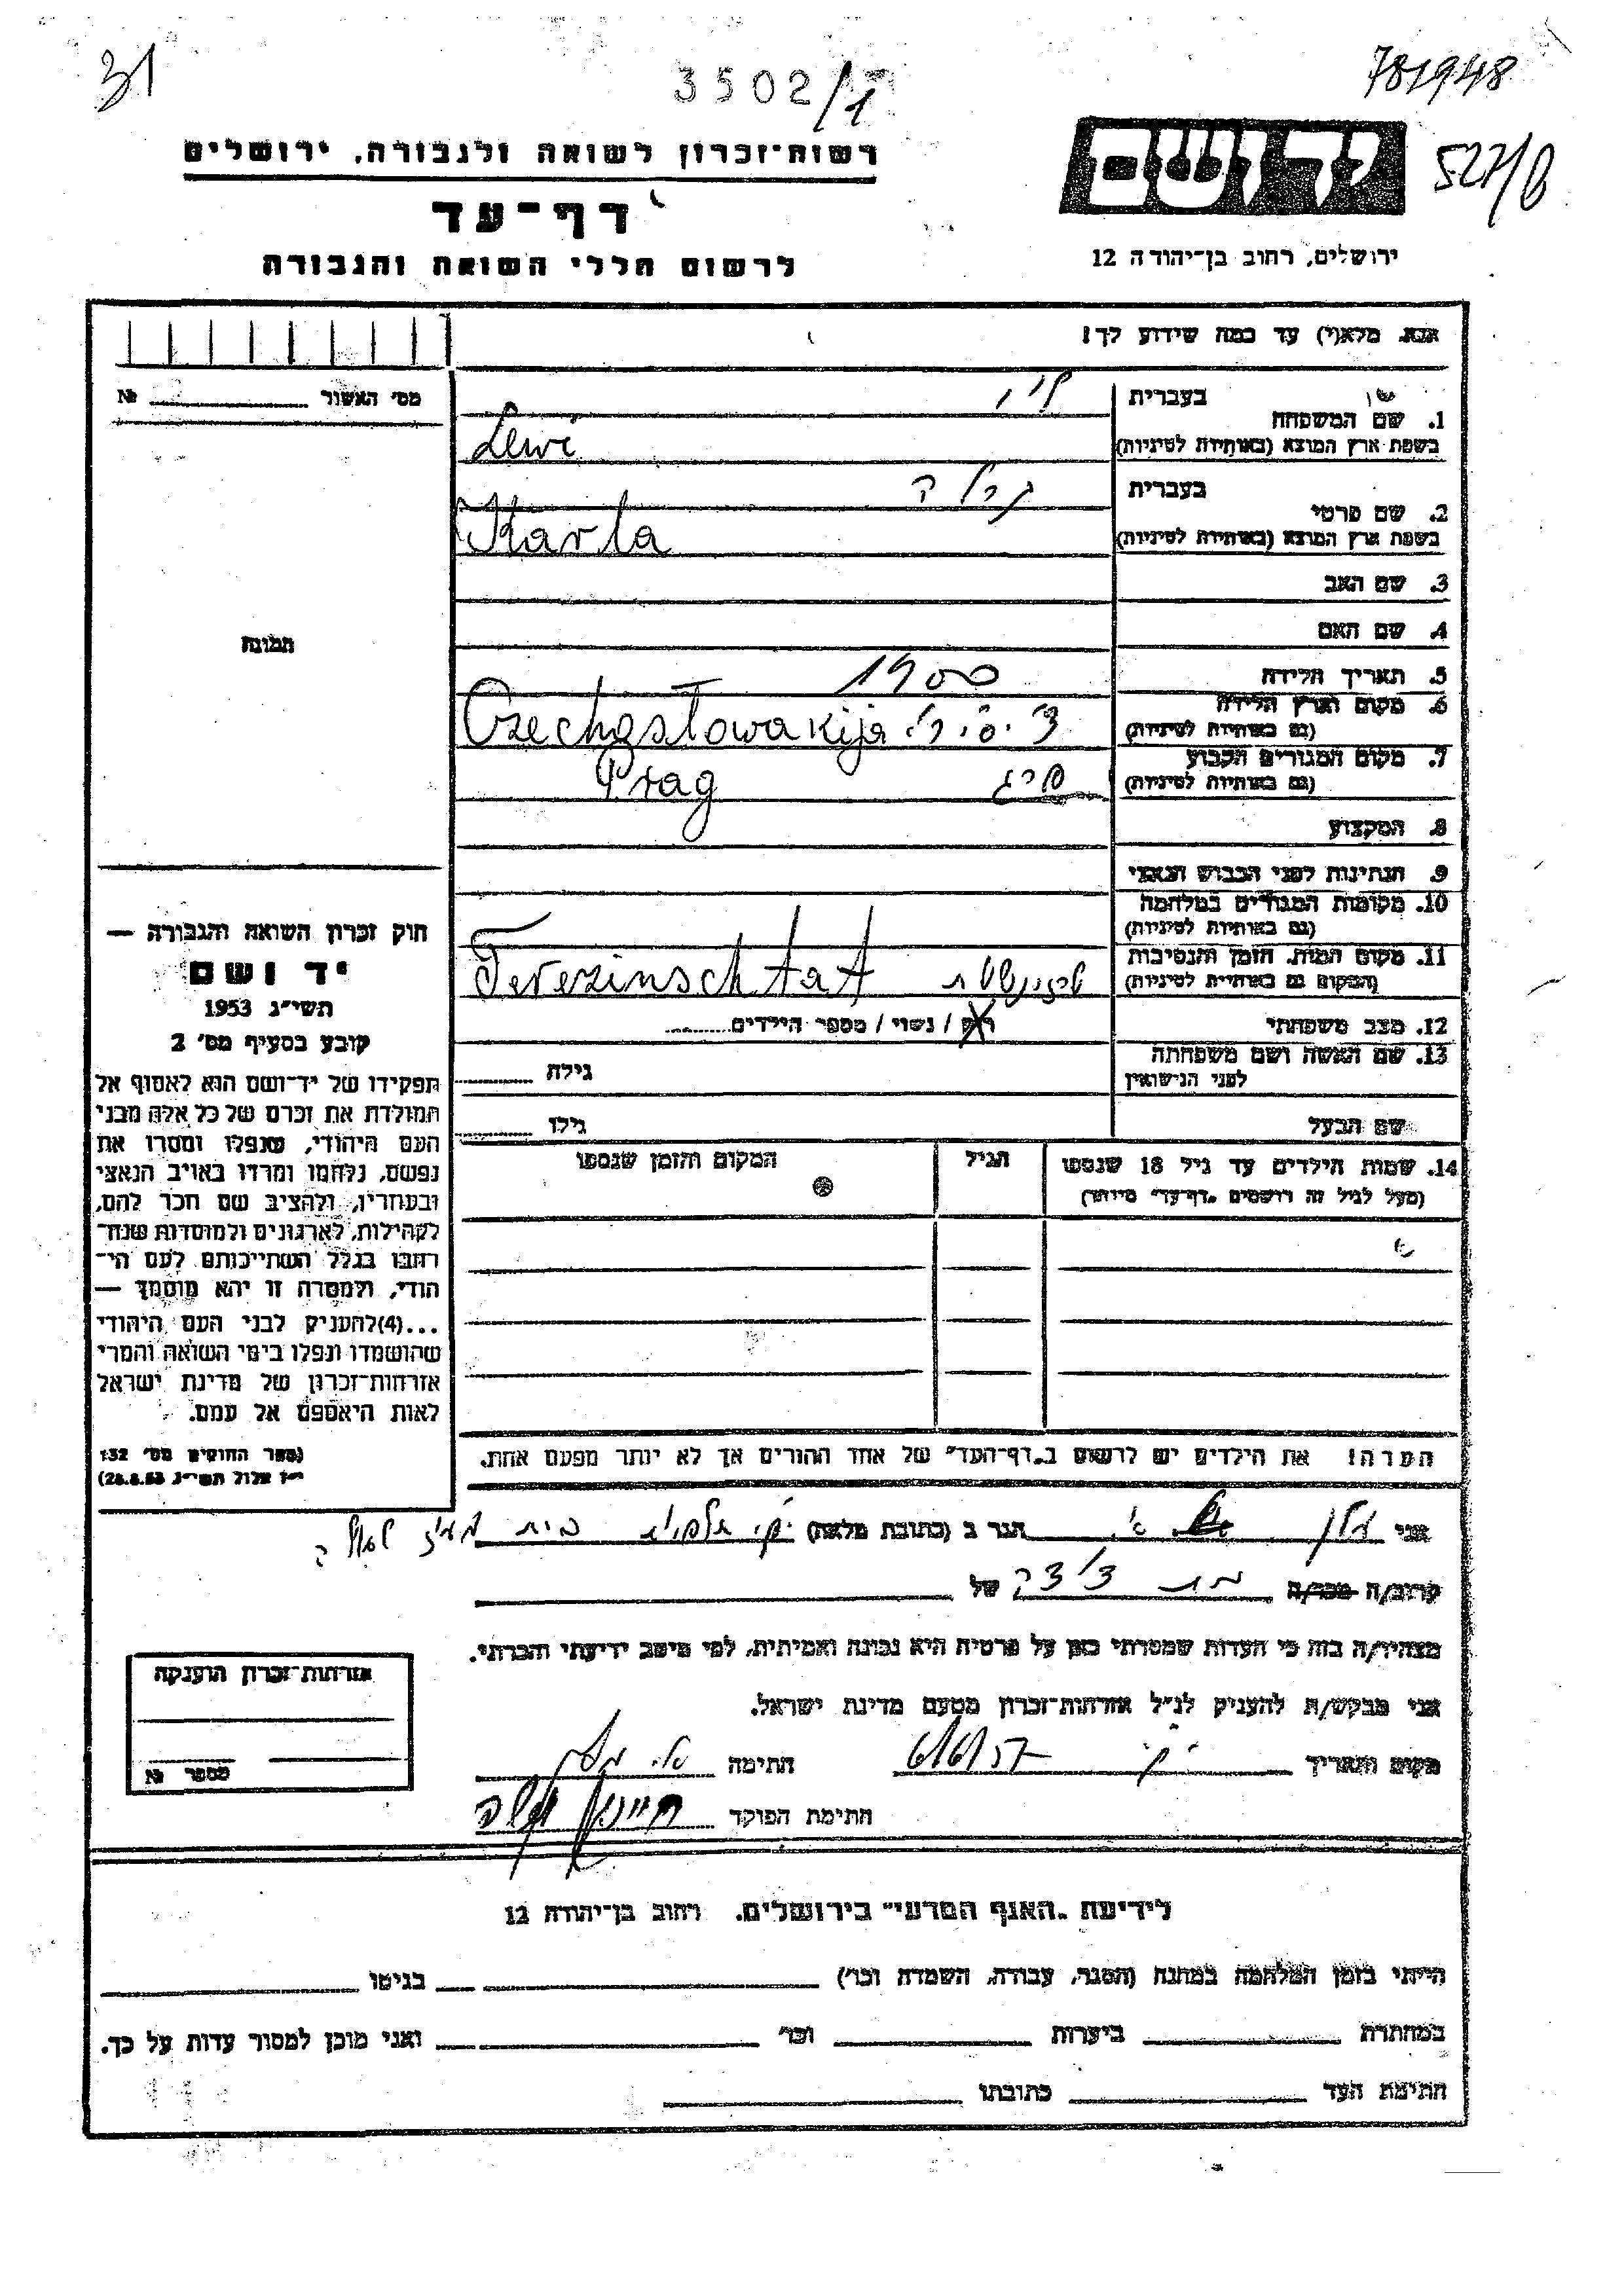 31
3502/1
781948
527/8
רשות-זכרון לשואה ולגבורה, ירושלים
יד ושם
דף-עד
ירושלים, רחוב בן-יהודה 12
לרשום חללי השואה והגבורה
אנא, מלא(י) עד כמה שידוע לך!
מס׳ האשור № 
בעברית לוי
1. שם המשפחה
בשפת ארץ המוצא (באותיות לטיניות) Lewi
בעברית קרלה
2. שם פרטי
בשפת ארץ המוצא (באותיות לטיניות) Karla
3. שם האב
4. שם האם
תמונה
5. תאריך הלידה 1900
6. מקום וארץ הלידה
(גם באותיות לטיניות) Czechostowakija
7. מקום המגורים הקבוע
(גם באותיות לטיניות) פרג Prag
8. המקצוע
9. הנתינות לפני הכבוש הנאצי
10. מקומות המגורים במלחמה
(גם באותיות לטיניות)
11. מקום המות, הזמן והנסיבות
(המקום גם באותיות לטיניות) Terezinschtat
12. מצב משפחתי רוק / נשוי / מספר הילדים
13. שם האשה ושם משפחתה
לפני הנישואין גילה
שם הבעל גילו
14. שמות הילדים עד גיל 18 שנספו הגיל המקום והזמן שנספו
(מעל לגיל זה רושמים „דף-עד״ מיוחד)
הערה! את הילדים יש לרשום ב„דף-העד״ של אחד ההורים אך לא יותר מפעם אחת.
חוק זכרון השואה והגבורה —
יד ושם
תשי״ג 1953
קובע בסעיף מס׳ 2
תפקידו של יד-ושם הוא לאסוף אל
המולדת את זכרם של כל אלה מבני
העם היהודי, שנפלו ומסרו את
נפשם, נלחמו ומרדו באויב הנאצי
ובעוזריו, ולהציב שם וזכר להם,
לקהילות, לארגונים ולמוסדות שנח-
רבו בגלל השתייכותם לעם הי-
הודי, ולמטרה זו יהא מוסמך —
...(4)להעניק לבני העם היהודי
שהושמדו ונפלו בימי השואה והמרי
אזרחות-זכרון של מדינת ישראל
לאות היאספם אל עמם.
(ספר החוקים מס׳ 132
י״ז אלול תשי״ג 28.8.53)
אני הגר ב (כתובת מלאה)
קרוב/ה מכר/ה של
מצהיר/ה בזה כי העדות שמסרתי כאן על פרטיה היא נכונה ואמיתית, לפי מיטב ידיעתי והכרתי.
אני מבקש/ת להעניק לנ״ל אזרחות-זכרון מטעם מדינת ישראל.
מקום ותאריך חתימה
חתימת הפוקד
אזרחות-זכרון הוענקה
מספר №
לידיעת „האגף המדעי״ בירושלים, רחוב בן-יהודה 12
הייתי בזמן המלחמה במחנה (הסגר, עבודה, השמדה וכו׳) בגיטו
במחתרת ביערות וכו׳ ואני מוכן למסור עדות על כך.
חתימת העד כתובתו